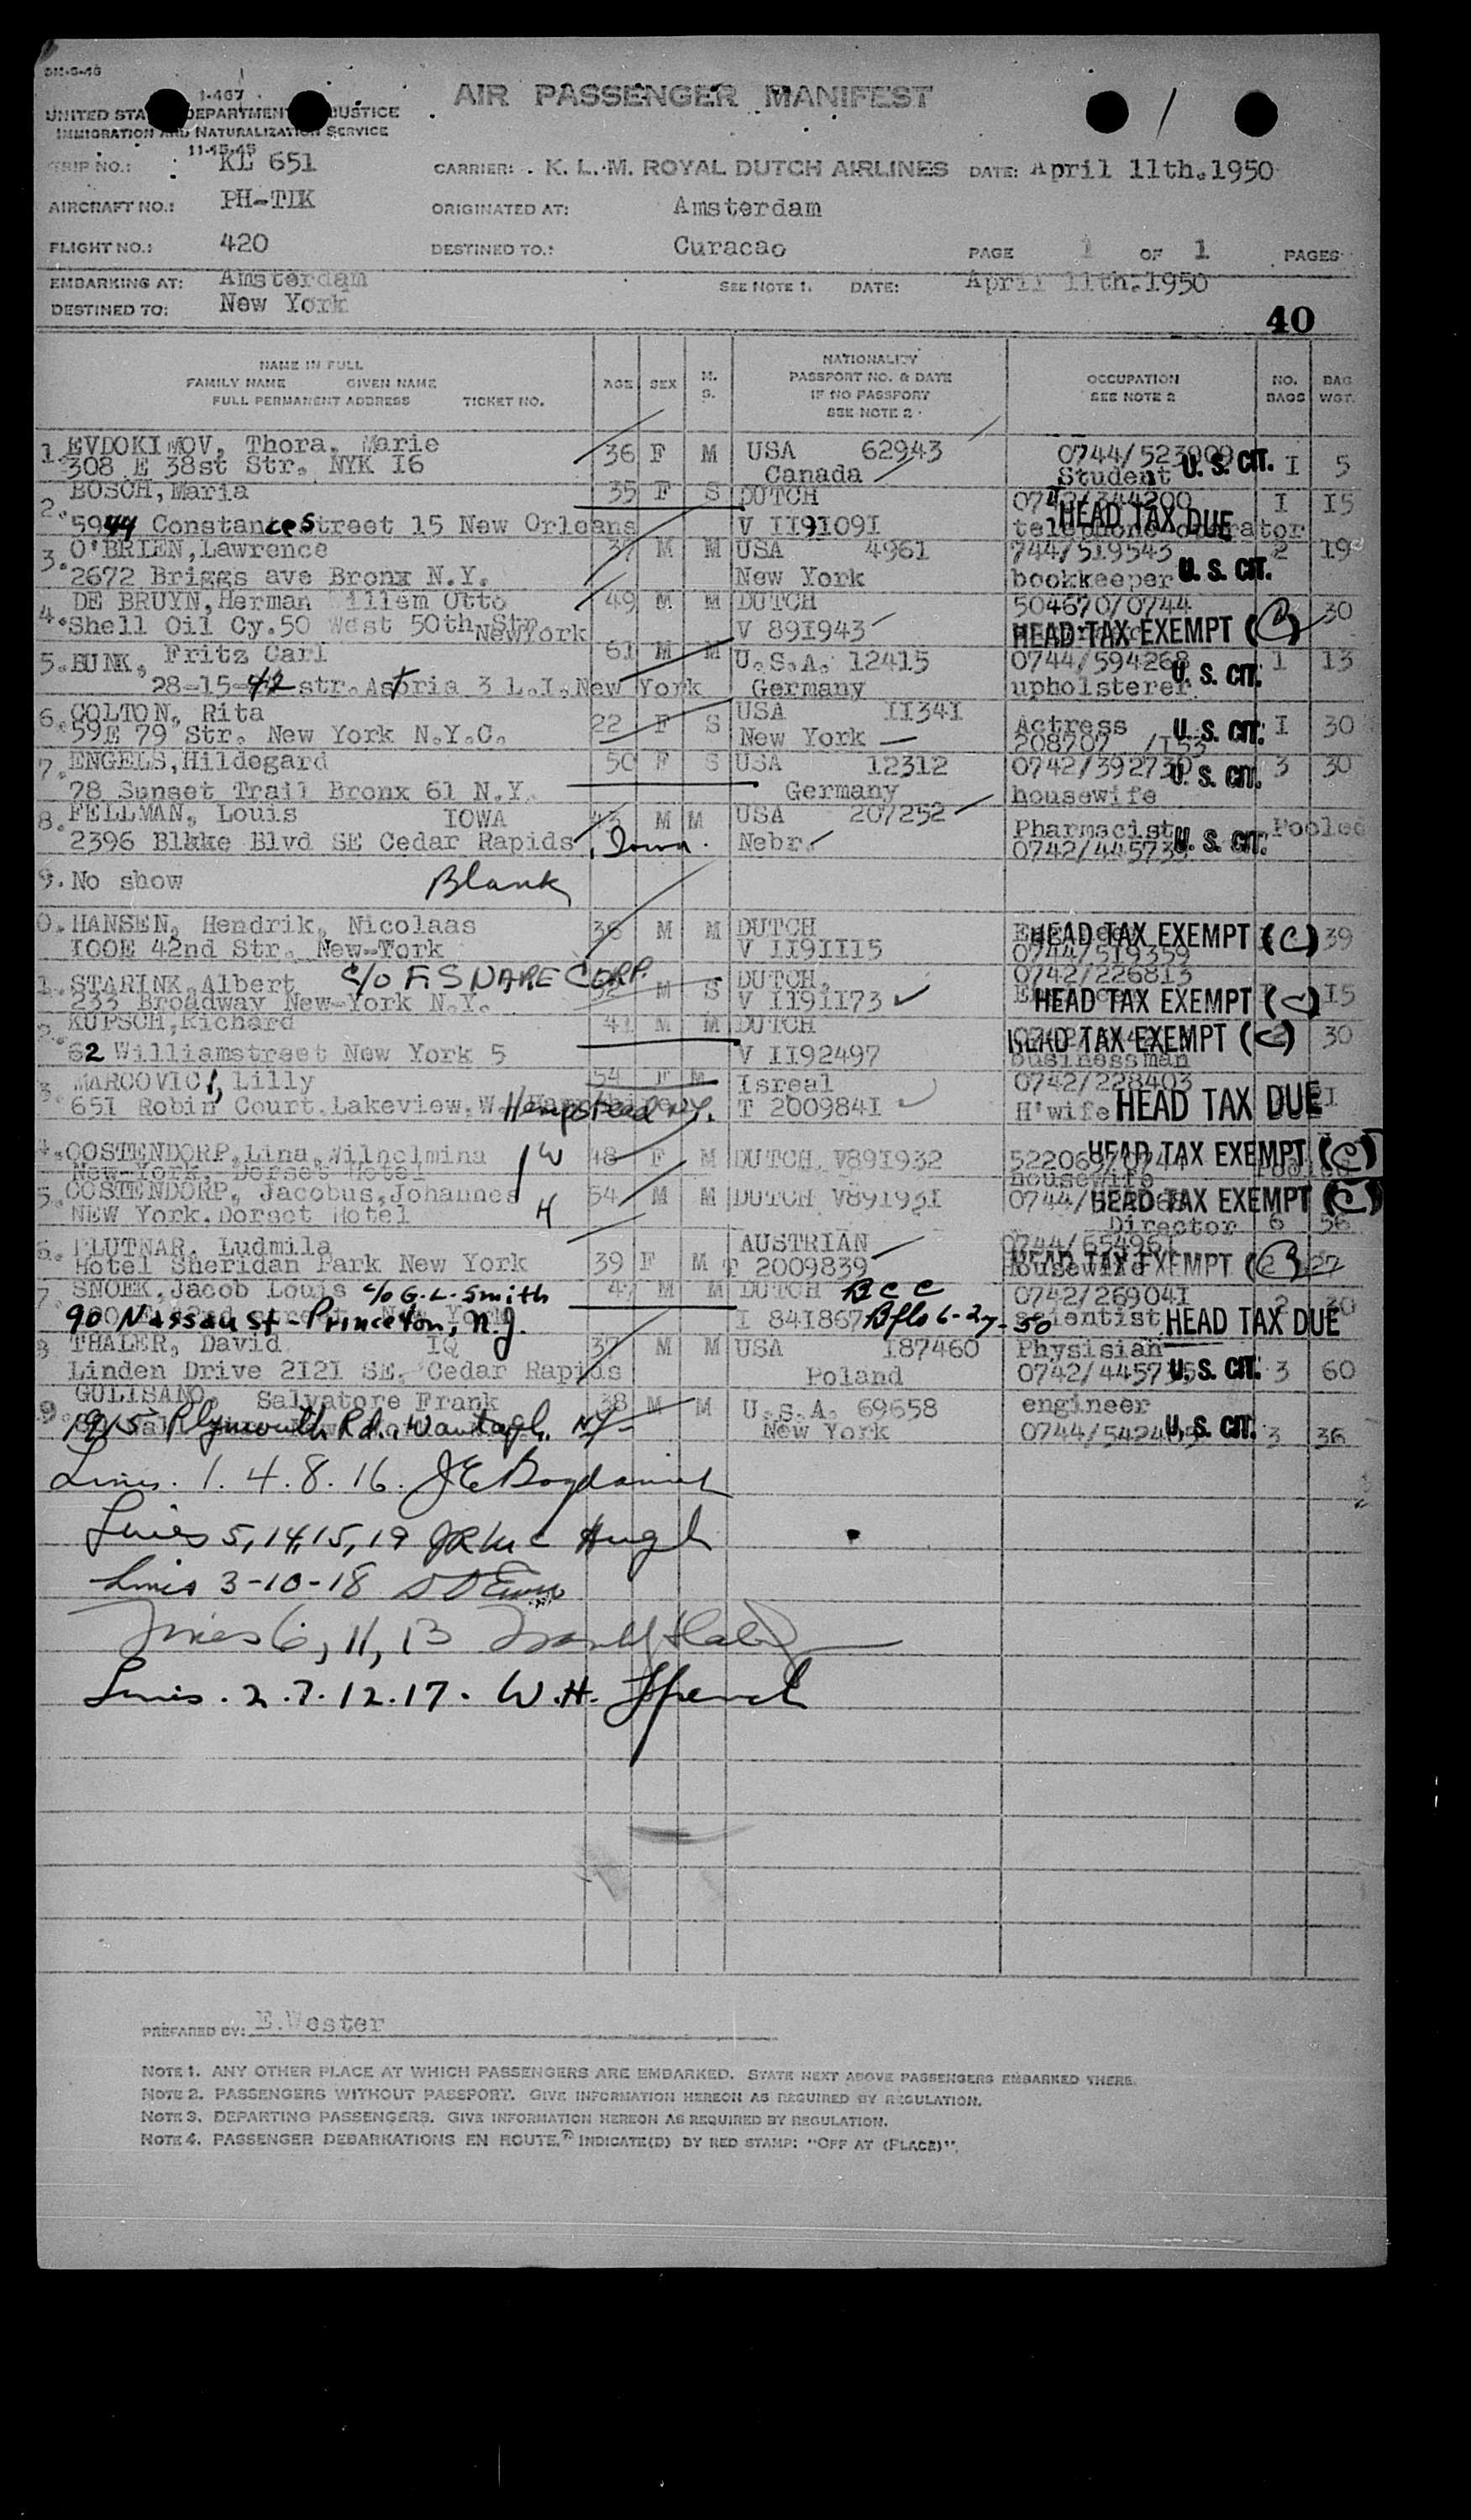 SM-5-46
1-467
UNITED STA DEPARTMENT USTICE
IMMIGRATION AND NATURALIZATION SERVICE
11-15-45
AIR PASSENGER MANIFEST
/
TRIP NO.: KL 651 CARRIER: K. L. M. ROYAL DUTCH AIRLINES DATE: April 11th.1950
AIRCRAFT NO.: PH-TIK ORIGINATED AT: Amsterdam
FLIGHT NO.: 420 DESTINED TO.: Curacao PAGE 1 OF 1 PAGES
EMBARKING AT: Amsterdam SEE NOTE 1. DATE: April 11th.1950
DESTINED TO: New York
40
NAME IN FULL
FAMILY NAME GIVEN NAME
FULL PERMANENT ADDRESS TICKET NO.
AGE SEX M. S.
NATIONALITY
PASSPORT NO. & DATE
IF NO PASSPORT
SEE NOTE 2
OCCUPATION
SEE NOTE 2
NO. BAGS
BAG WGT.
1. EVDOKIMOV, Thora, Marie 36 F M USA 62943 0744/523909 U. S. CIT. I 5
308 E 38st Str. NYK I6 Canada Student
2. BOSCH, Maria 35 F S DUTCH 0742/344200 I I5
5944 Constances Street 15 New Orleans V II9I09I telephone operator HEAD TAX DUE
3. O'BRIEN, Lawrence 37 M M USA 4961 744/519543 2 19
2672 Briggs ave Bronx N.Y. New York bookkeeper U. S. CIT.
4. DE BRUYN, Herman Willem Otto 49 M M DUTCH 504670/0744 30
Shell Oil Cy.50 West 50th Str. NewYork V 891943 HEAD TAX EXEMPT (C)
5. BUNK, Fritz Carl 61 M M U.S.A. 12415 0744/594268 1 13
28-15-42 str.Astoria 3 L.I.New York Germany upholsterer U. S. CIT.
6. COLTON, Rita 22 F S USA II34I Actress U. S. CIT. I 30
59E 79 Str. New York N.Y.C. New York 208707 /I53
7. ENGELS, Hildegard 50 F S USA 12312 0742/392730 U. S. CIT. 3 30
78 Sunset Trail Bronx 61 N.Y. Germany housewife
8. FELLMAN, Louis IOWA 43 M M USA 207252 Pharmacist Pooled
2396 Blkke Blvd SE Cedar Rapids, Iowa. Nebr. 0742/445736 U. S. CIT.
9. No show Blank
0. HANSEN, Hendrik, Nicolaas 36 M M DUTCH HEAD TAX EXEMPT (C) 39
IOOE 42nd Str. New-York V II9III5 0744/519359
c/o F. SNARE CORP.
1. STARINK, Albert 32 M S DUTCH, 0742/226813
233 Broadway New-York N.Y. V II9II73 HEAD TAX EXEMPT (C) I5
2. KUPSCH, Richard 41 M M DUTCH HEAD TAX EXEMPT (C) 30
62 Williamstreet New York 5 V II92497 businessman
3. MARCOVICI, Lilly 54 F M Isreal 0742/228403
651 Robin Court. Lakeview. W. Hempstead N.Y. T 200984I H'wife HEAD TAX DUE
4. OOSTENDORP, Lina, Wilhelmina W 48 F M DUTCH V89I932 522069/0744 HEAD TAX EXEMPT (C)
New-York, Dorset Hotel housewife Pooled
5. OOSTENDORP, Jacobus, Johannes H 54 M M DUTCH V89I93I HEAD TAX EXEMPT (C)
NEW York. Dorset Hotel Director 6 56
6. FLUTNAR, Ludmila 39 F M AUSTRIAN 0744/654961
Hotel Sheridan Park New York T 2009839 housewife HEAD TAX EXEMPT (C) 2 27
7. SNOEK, Jacob Louis c/o G. L. Smith 47 M M DUTCH B C C 0742/26904I 2 30
90 Nassau St - Princeton, N.J. I 841867 Bflo 6-27-50 scientist HEAD TAX DUE
8 THALER, David IQ 37 M M USA I87460 Physisian
Linden Drive 2I2I SE. Cedar Rapids Poland 0742/445735 U. S. CIT. 3 60
9. GULISANO, Salvatore Frank 38 M M U.S.A. 69658 engineer
1915 Plymouth Rd. Wantagh. NY New York 0744/542405 U. S. CIT. 3 36
Lines. 1. 4. 8. 16. J E Bogdaniel
Lines 5, 14, 15, 19 J R Mc Hugh
Lines 3-10-18
Lines 6, 11, 13
Lines. 2. 7. 12. 17. W. H.
PREPARED BY: E.Wester
NOTE 1. ANY OTHER PLACE AT WHICH PASSENGERS ARE EMBARKED. STATE NEXT ABOVE PASSENGERS EMBARKED THERE.
NOTE 2. PASSENGERS WITHOUT PASSPORT. GIVE INFORMATION HEREON AS REQUIRED BY REGULATION.
NOTE 3. DEPARTING PASSENGERS. GIVE INFORMATION HEREON AS REQUIRED BY REGULATION.
NOTE 4. PASSENGER DEBARKATIONS EN ROUTE. INDICATE(D) BY RED STAMP: "OFF AT (PLACE)".